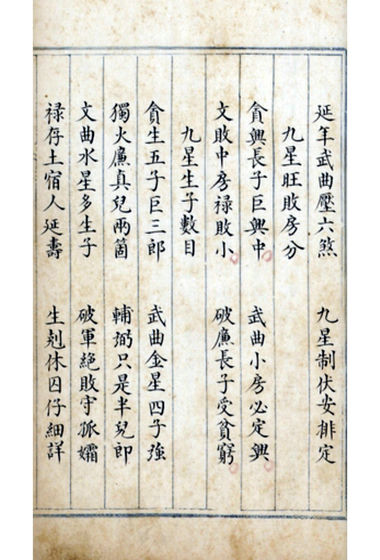 延年武曲壓六煞　九星制伏安排定
九星旺敗房分
貪興長子巨興中　武曲小房必定興
文敗中房祿敗小　破廉長子受貧窮
九星生子數目
貪生五子巨三郎　武曲金星四子強
獨火廉真兒兩箇　輔弼只是半兒郎
文曲水星多生子　破軍絕敗守孤孀
祿存土宿人延壽　生剋休囚仔細詳